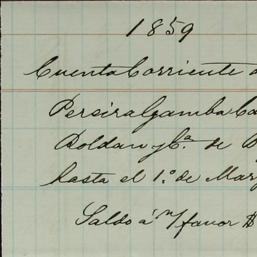 1859
Cuenta Corriente
Pereira Gamba Ca
Roldan y Ca. de B
hasta el 1.º de Mar
Saldo á n/ favor D